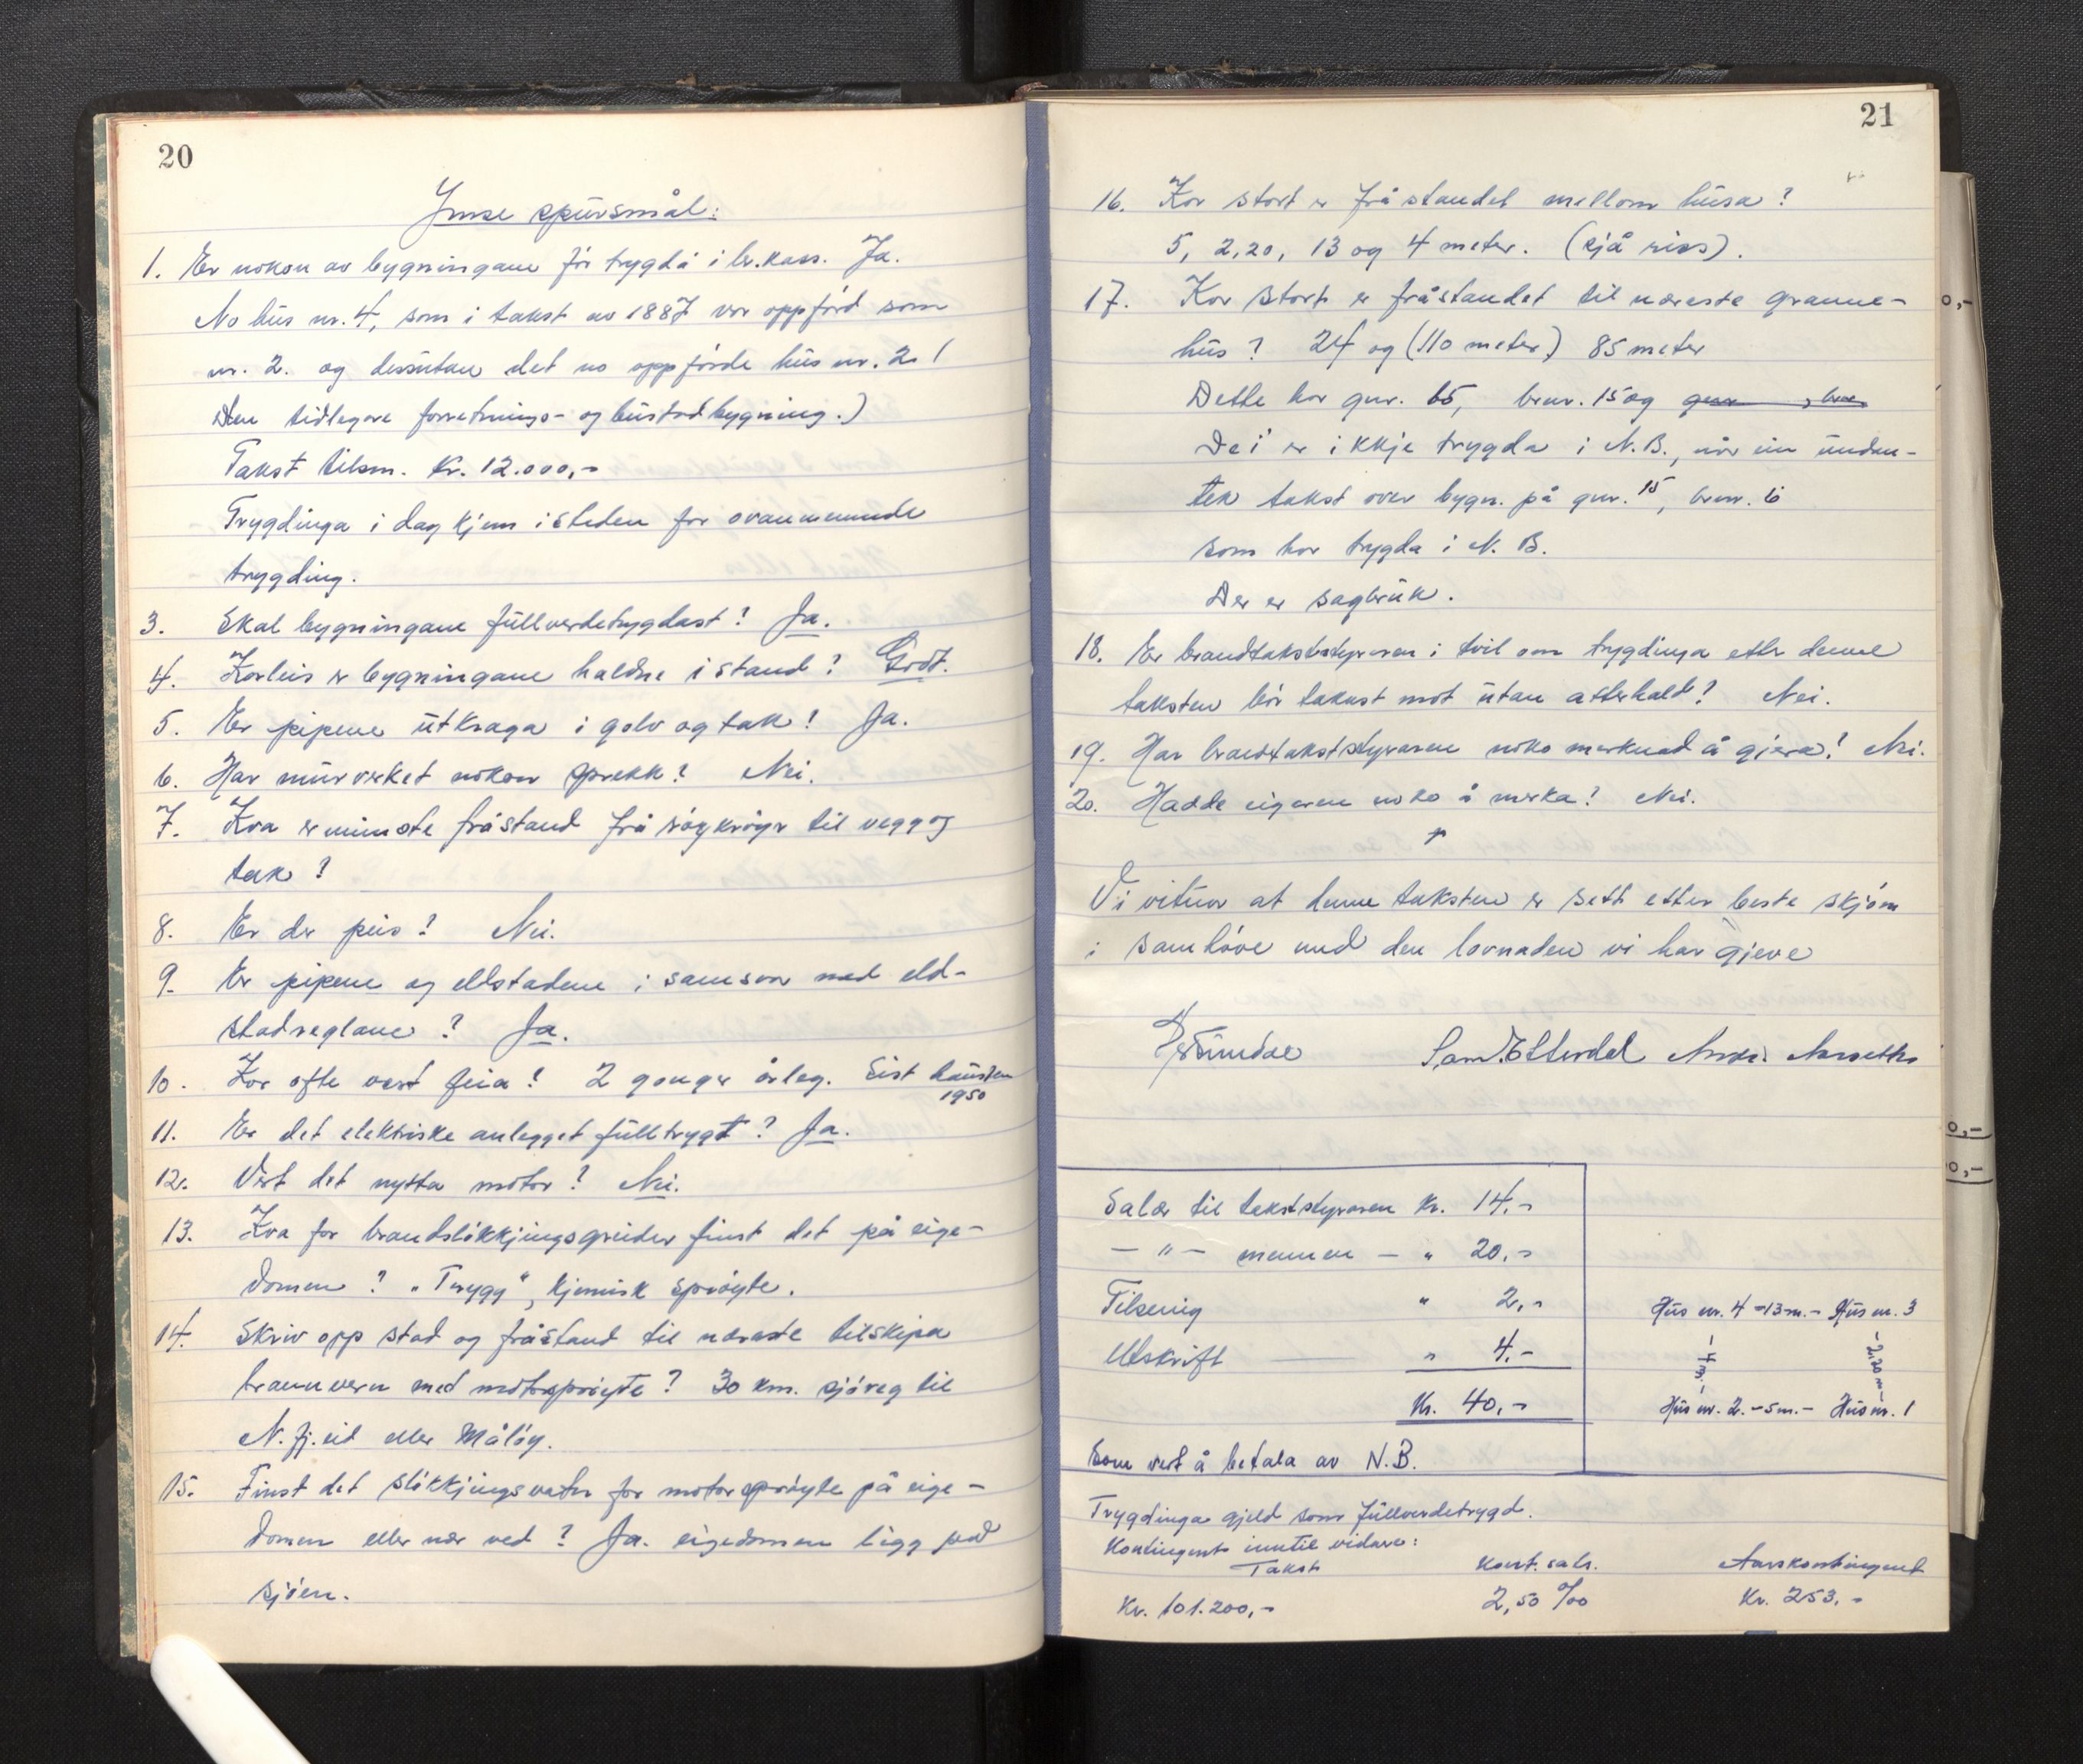 20
Ymse spursmål:
1. Er nokon av bygningane før trygda i br.kass. Ja.
No hus nr. 4, som i takst av 1887 var oppførd som
nr. 2. og dessutan det no oppførde hus nr. 2 (
Den tidlegare forretnings- og bustadbygning.)
Takst tilsm. kr. 12.000,-
Trygdinga i dag kjem isteden for ovannemnde
trygding.
3. Skal bygningane fullverdetrygdast? Ja.
4. Korleis er bygningane haldne i stand? Godt.
5. Er pipene utkraga i golv og tak? Ja.
6. Har murverket nokon sprekk? Nei.
7. Kva er minste fråstand frå røykrøyr til vegg og
tak?
8. Er der peis? Nei.
9. Er pipene og eldstadene i samsvar med eld-
stadreglane? Ja.
10. Kor ofte vert feia? 2 gonger årleg. Sist hausten
1950
11. Er det elektriske anlegget fulltrygt? Ja.
12. Vert det nytta motor? Nei.
13. Kva for brandsløkkjingsgreider finst det på eige-
domen? "Trygg", kjemisk sprøyte.
14. Skriv opp stad og fråstand til næraste tilskipa
brannvern med motorsprøyte? 30 km. sjøveg til
N.fj.eid eller Måløy.
15. Finst det sløkkjingsvatn for motorsprøyte på eige-
domen eller nær ved? Ja. eigedomen ligg ved
sjøen.
21
16. Kor stort er fråstandet mellom husa?
5, 2,20, 13 og 4 meter. (sjå riss).
17. Kor stort er fråstandet til næraste granne-
hus? 24 og (110 meter) 85 meter
Dette har gnr. 65, brur. 15 og gnr , bnr.
Dei er ikkje trygda i N.B., når ein undan-
tek takst over bygn. på gnr. 15, brnr. 6
som har trygda i N. B.
Der er sagbruk.
18. Er brandtakststyraren i tvil om trygdinga etter denne
taksten bør takast mot utan atterhald? Nei.
19. Har brandtakststyraren noko merknad å gjera? Nei.
20. Hadde eigaren noko å merka? Nei.
Vi vitnar at denne taksten er sett etter beste skjøn
i samhøve med den lovnaden vi har gjeve
Sam. Otterdal
Salær til takststyraren kr. 14,-
- " - mennen - " 20,-
Tilsenig " 2,-
Utskrift " 4,-
Kr. 40,-
Som vert å betala av N.B.
Hus nr. 4 -13 m.- Hus nr. 3
- 4 m. -
- 2,20 m -
Hus nr. 2. - 5 m. - Hus nr. 1
Trygdinga gjeld som fullverdetrygd.
Kontingent inntil vidare:
Takst Kont. sats. Aarskontingent
Kr. 101.200,- 2,50 ‰ Kr. 253,-
0,-
0,-
0,-